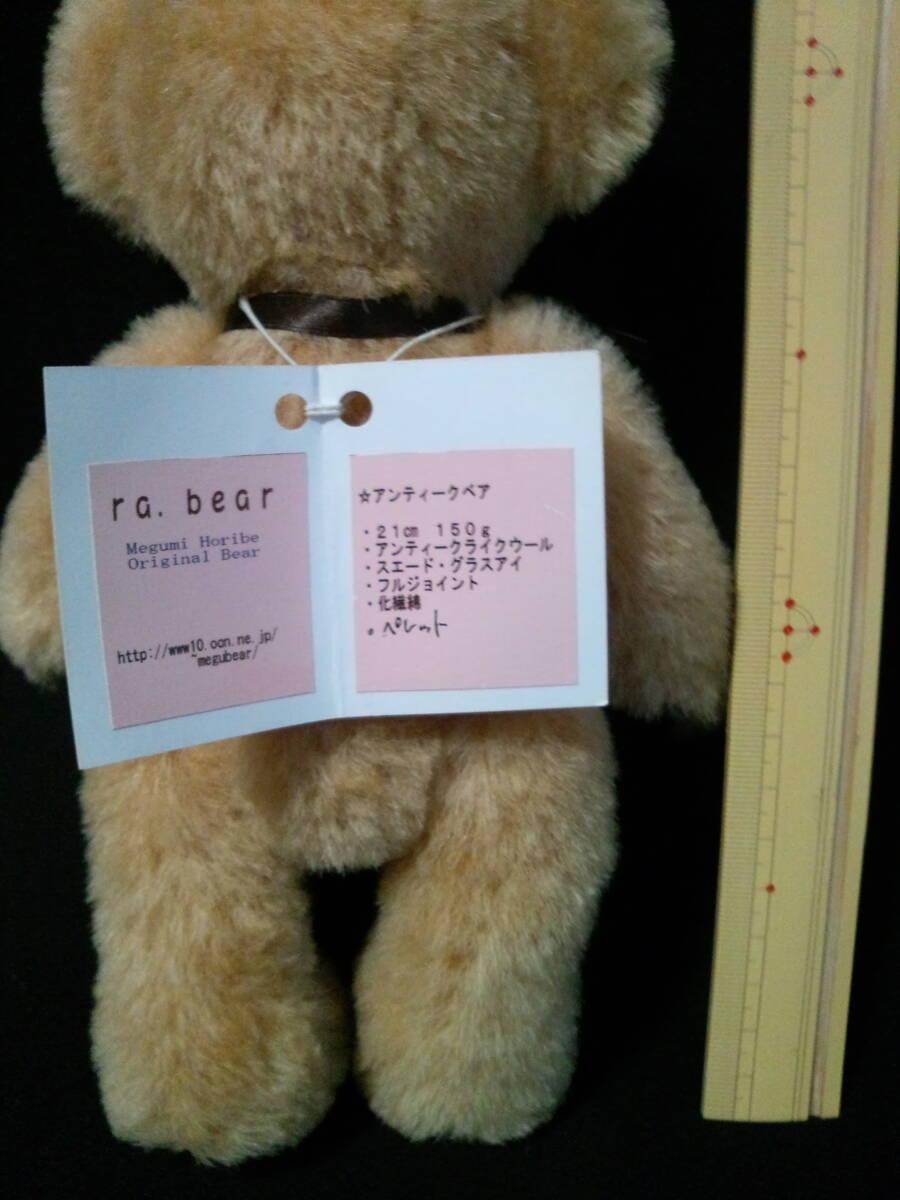 ra. bear
Megumi Horibe
Original Bear
http://www10.ocn.ne.jp/
~megubear/
☆アンティークベア
・21㎝ 150g
・アンティークライクウール
・スエード・グラスアイ
・フルジョイント
・化繊綿
・ペレット